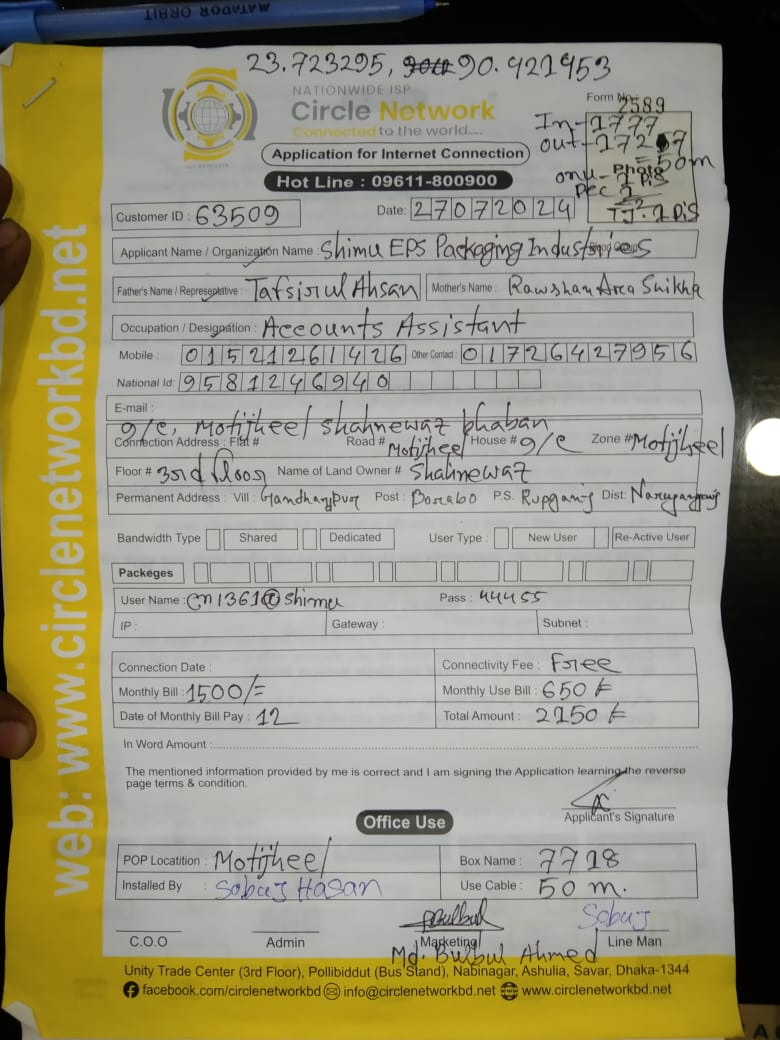 MATADOR ORBIT
23.723295, 90.421953
NATIONWIDE ISP
Circle Network
Connected to the world.....
Form No.: 2589
In-1777
out-1727
=50m
onu-
Application for Internet Connection
Hot Line : 09611-800900
Customer ID : 63509
Date: 27072024
TJ. 2 Pis
Applicant Name / Organization Name : Shimu EPS Packaging Industries
Father's Name / Represeptative : Tafsirul Ahsan Mother's Name : Rawshan Ara Shikha
Occupation / Designation : Accounts Assistant
Mobile : 01521261426 Other Contact : 01726427956
National Id: 9581246940
E-mail :
9/e, Motijheel Shahnewaz bhaban
Connection Address : Flat # Road # Motijheel House # 9/e Zone # Motijheel
Floor # 3rd floor Name of Land Owner # Shahnewaz
Permanent Address : Vill : Gandharbpur Post : Borabo P.S. Rupganj Dist: Narayanganj
Bandwidth Type Shared Dedicated User Type : New User Re-Active User
Packeges
User Name : cn1361@shimu Pass : 44455
IP : Gateway : Subnet :
Connection Date : Connectivity Fee : Free
Monthly Bill : 1500/= Monthly Use Bill : 650
Date of Monthly Bill Pay : 12 Total Amount : 2150
In Word Amount :
The mentioned information provided by me is correct and I am signing the Application learning the reverse
page terms & condition.
Applicant's Signature
Office Use
POP Locatition : Motijheel Box Name : 7718
Installed By : Sobuj Hasan Use Cable : 50 m.
Bulbul Sobuj
C.O.O Admin Marketing Line Man
Md. Bulbul Ahmed
Unity Trade Center (3rd Floor), Pollibiddut (Bus Stand), Nabinagar, Ashulia, Savar, Dhaka-1344
facebook.com/circlenetworkbd info@circlenetworkbd.net www.circlenetworkbd.net
web: www.circlenetworkbd.net